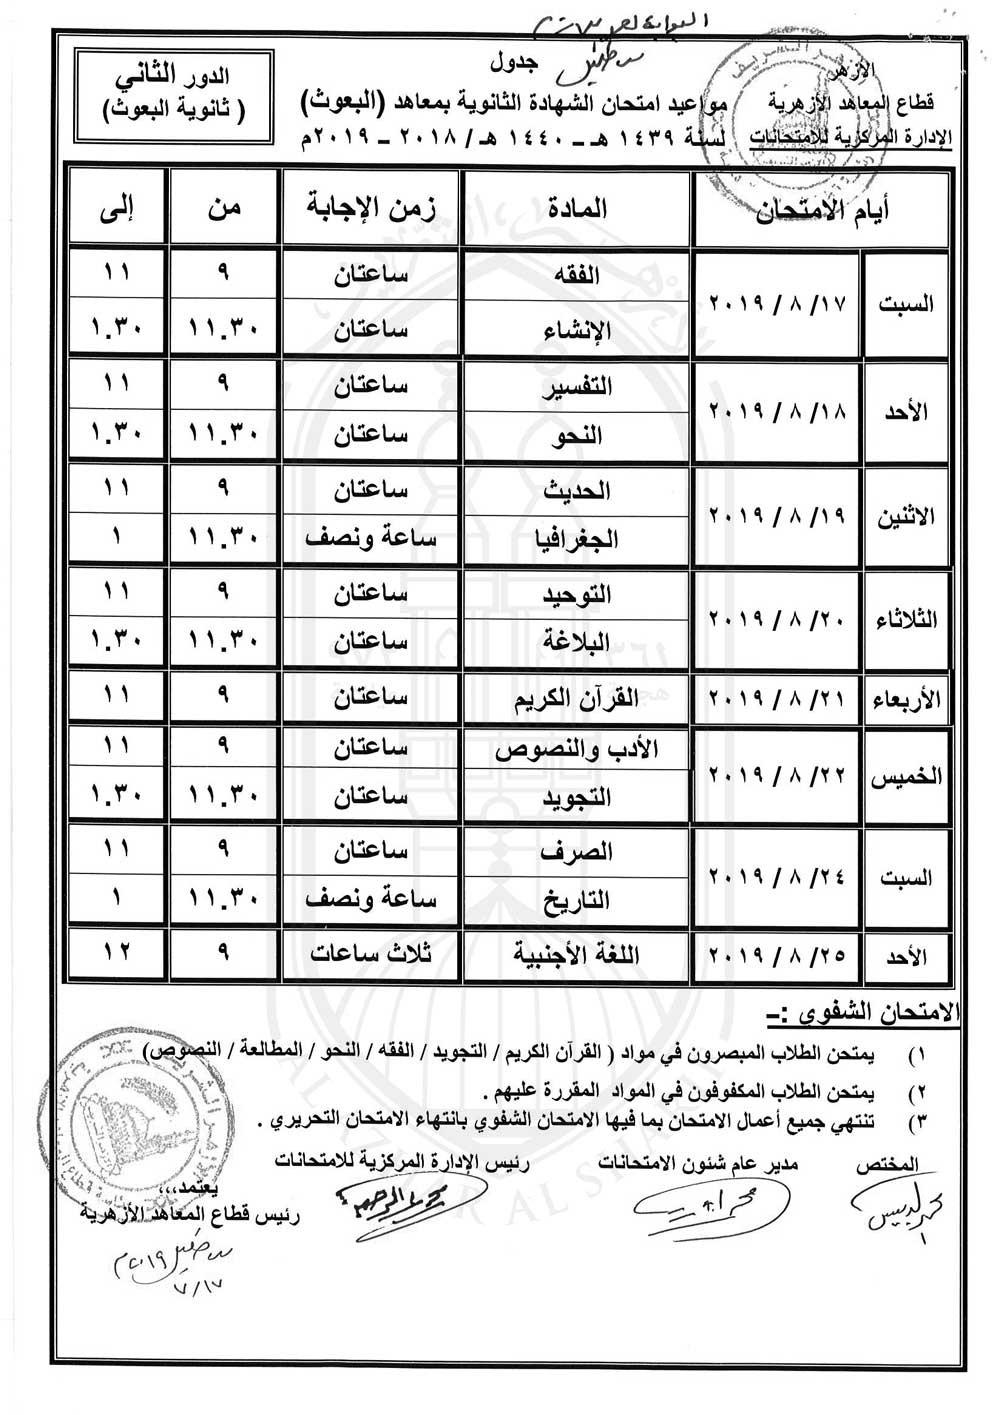 الأزهر
قطاع المعاهد الأزهرية
الإدارة المركزية للامتحانات
جدول
مواعيد امتحان الشهادة الثانوية بمعاهد (البعوث)
لسنة ١٤٣٩ هـ – ١٤٤٠ هـ / ٢٠١٨ – ٢٠١٩م
الدور الثاني
( ثانوية البعوث)
أيام الامتحان المادة زمن الإجابة من إلى
السبت ٢٠١٩ / ٨ /١٧ الفقه ساعتان ٩ ١١
الإنشاء ساعتان ١١.٣٠ ١.٣٠
الأحد ٢٠١٩ / ٨ /١٨ التفسير ساعتان ٩ ١١
النحو ساعتان ١١.٣٠ ١.٣٠
الاثنين ٢٠١٩ / ٨ /١٩ الحديث ساعتان ٩ ١١
الجغرافيا ساعة ونصف ١١.٣٠ ١
الثلاثاء ٢٠١٩ / ٨ /٢٠ التوحيد ساعتان ٩ ١١
البلاغة ساعتان ١١.٣٠ ١.٣٠
الأربعاء ٢٠١٩ / ٨ /٢١ القرآن الكريم ساعتان ٩ ١١
الخميس ٢٠١٩ / ٨ /٢٢ الأدب والنصوص ساعتان ٩ ١١
التجويد ساعتان ١١.٣٠ ١.٣٠
السبت ٢٠١٩ / ٨ /٢٤ الصرف ساعتان ٩ ١١
التاريخ ساعة ونصف ١١.٣٠ ١
الأحد ٢٠١٩ / ٨ /٢٥ اللغة الأجنبية ثلاث ساعات ٩ ١٢
الامتحان الشفوي :–
١) يمتحن الطلاب المبصرون في مواد ( القرآن الكريم / التجويد / الفقه / النحو / المطالعة / النصوص)
٢) يمتحن الطلاب المكفوفون في المواد المقررة عليهم .
٣) تنتهي جميع أعمال الامتحان بما فيها الامتحان الشفوي بانتهاء الامتحان التحريري .
المختص مدير عام شئون الامتحانات رئيس الإدارة المركزية للامتحانات
يعتمد،،،
رئيس قطاع المعاهد الأزهرية
٧/١٧